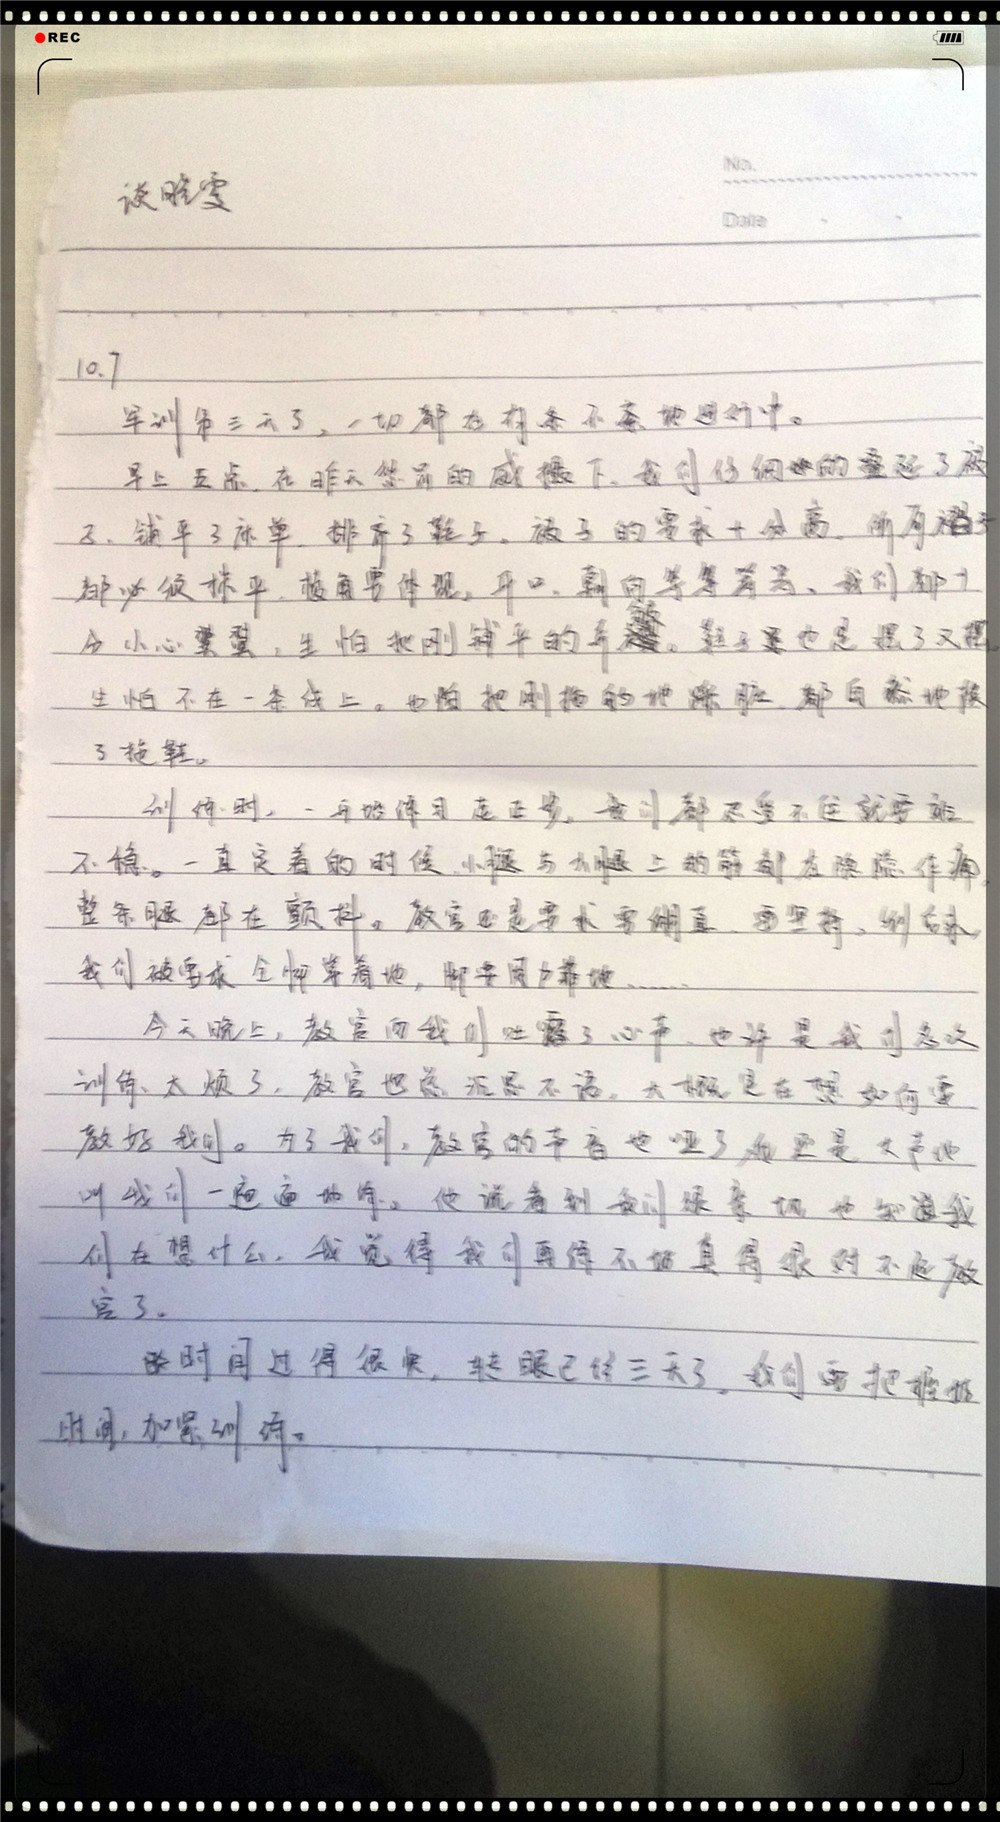 REC
No.
Date
谈晓雯
10.7
军训第三天了,一切都在有条不紊地进行中。
早上五点,在昨天禁首的威慑下,我们仔细地的叠起了被
子,铺平了床单,排齐了鞋子。被子的要求十分高,所有褶子
都必须抹平,棱角要体现,开口、朝向等等等等,我们都十
分小心翼翼,生怕把刚铺平的弄皱。鞋子也是摆了又摆
生怕不在一条线上。也怕把刚拖的地踩脏,都自然地换
了拖鞋。
训练时,一开始练习走正步,我们都忍受不住就要站
不稳。一直定着的时候,小腿与大腿上的筋都在隐隐作痛,
整条腿都在颤抖。教官还是要求要绷直,要坚持,到后来,
我们被要求全脚掌着地,脚要用力靠地……
今天晚上,教官向我们吐露了心声,也许是我们这次
训练太烦了,教官也沉思不语,大概是在想如何要
教好我们。为了我们,教官的声音也哑了,他还是大声地
叫我们一遍遍地练。他说看到我们很亲切,也知道我
们在想什么,我觉得我们再练不好真得很对不起教
官了。
时间过得很快,转眼已经三天了,我们要把握好
时间,加紧训练。